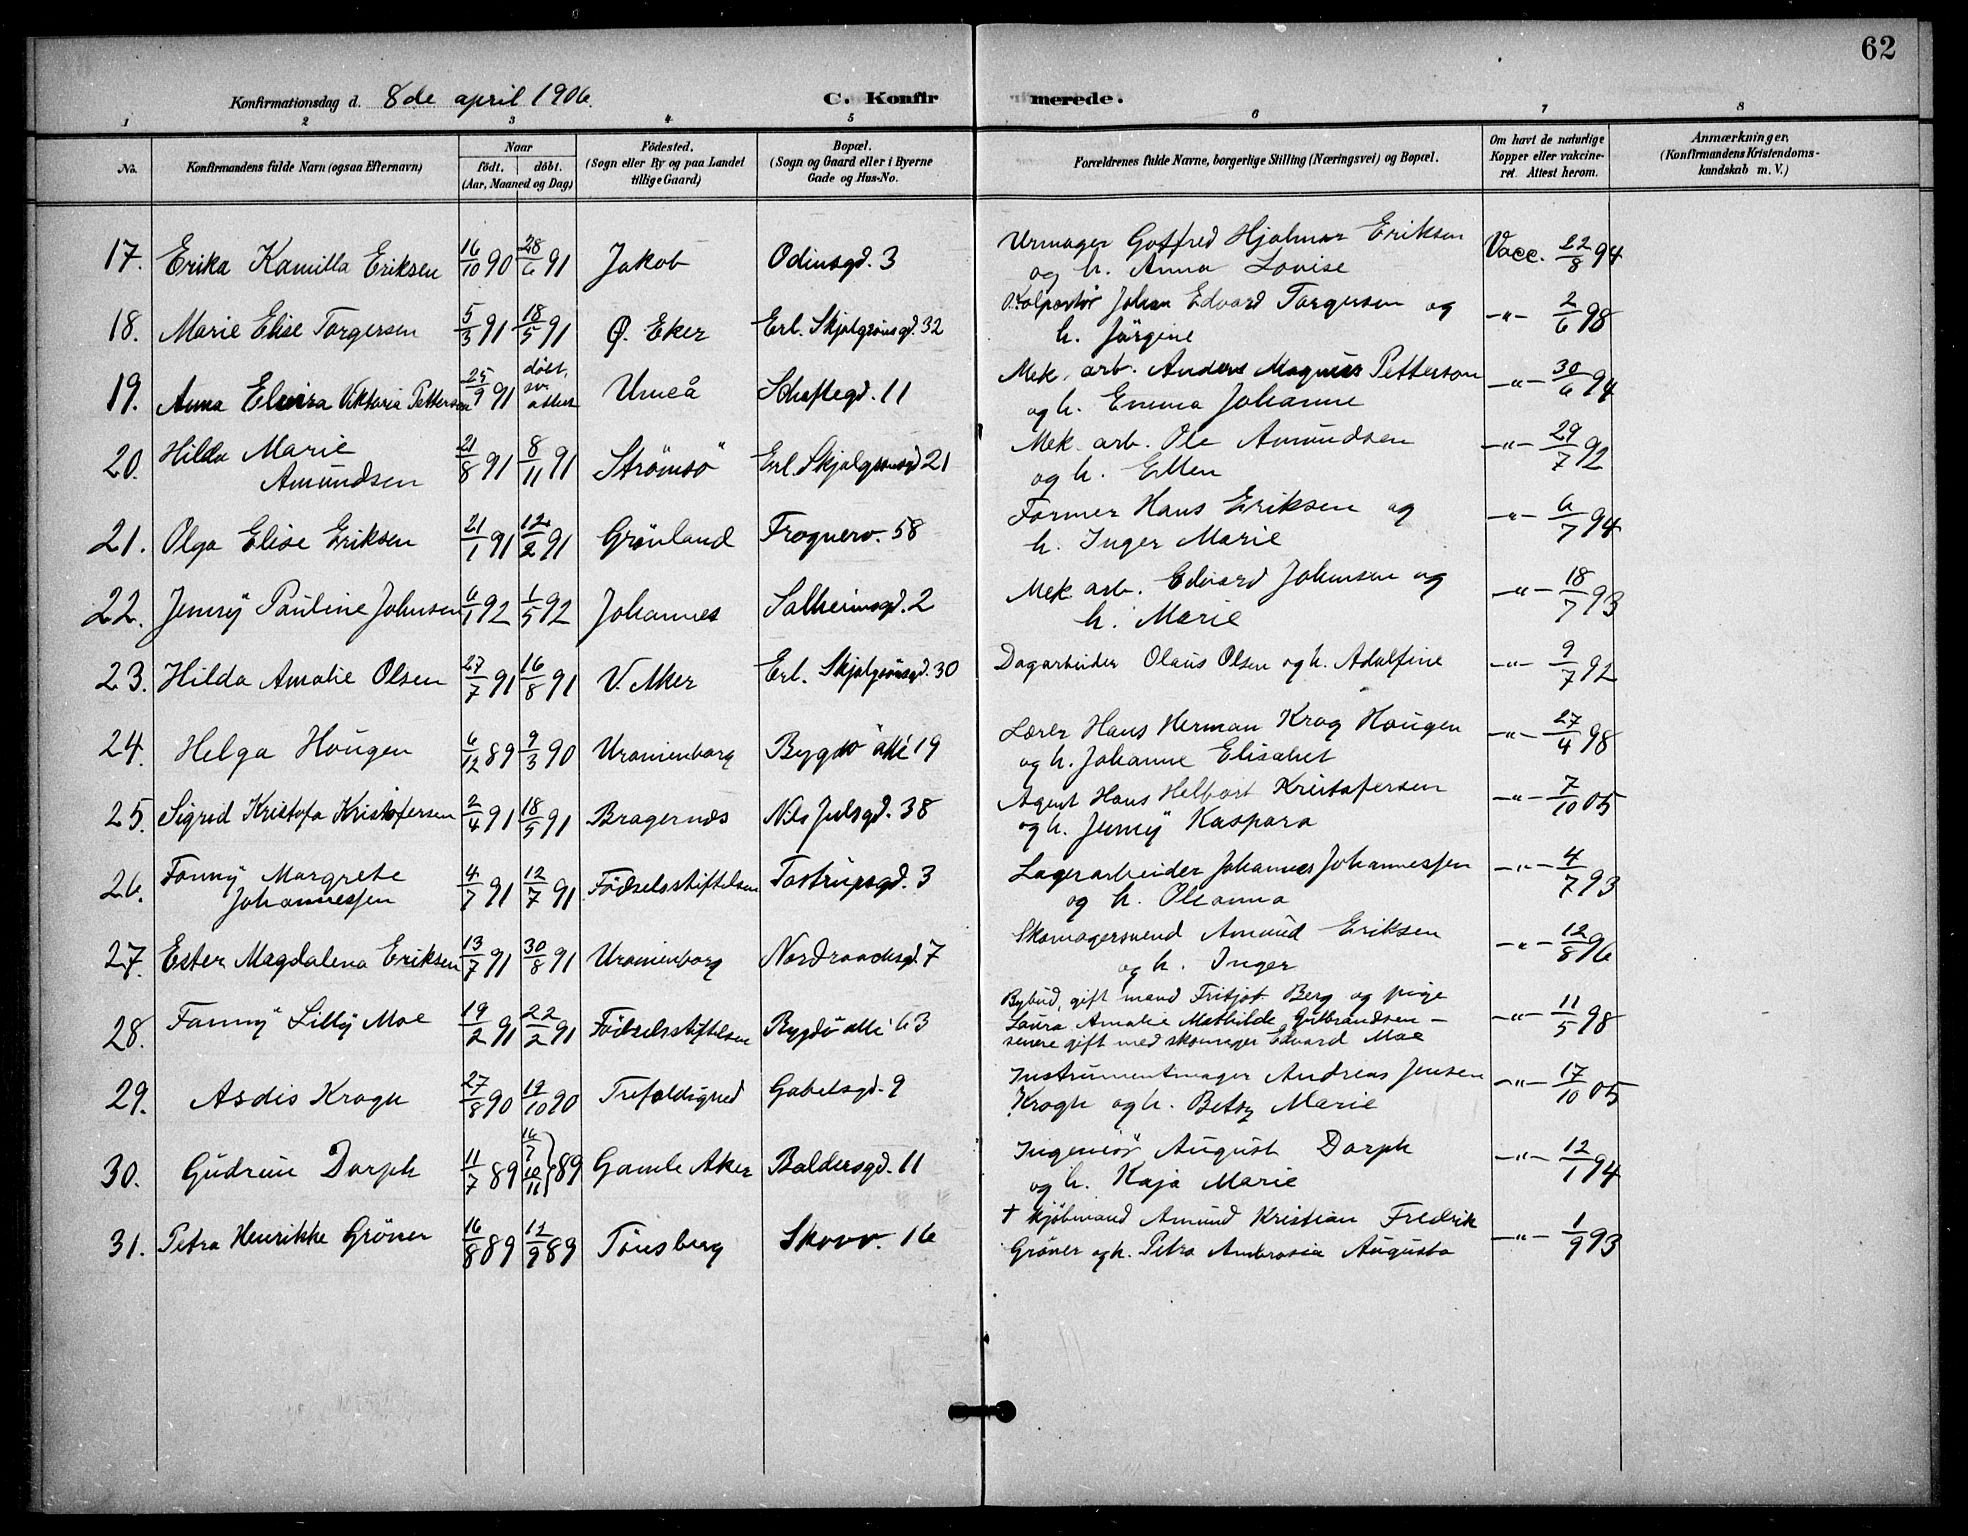 62
Konfirmationsdag d. 8de april 1906. C. Konfirmerede.
1 2 3 4 5 6 7 8
No. Konfirmandens fulde Navn (ogsaa Efternavn) Naar født. døbt. (Aar, Maaned og Dag) Födested. (Sogn eller By og paa Landet tillige Gaard) Bopæl. (Sogn og Gaard eller i Byerne Gade og Hus-No. Forældrenes fulde Navne, borgerlige Stilling (Næringsvei) og Bopæl. Om havt de naturlige Kopper eller vakcineret. Attest herom. Anmærkninger. (Konfirmandens Kristendomskundskab m. V.)
17. Erika Kamilla Eriksen 16/10 90 28/6 91 Jakob Odinsgd. 3 Urmager Gotfred Hjalmar Eriksen Vacc. 22/8 94
og h. Anna Lovise
18. Marie Elise Torgersen 5/3 91 18/5 91 Ø. Eker Erl. Skjalgsönsgd. 32 Kolportör Johan Edvard Torgersen og -"- 2/6 98
h. Jörgine
19. Anna Elvira Viktoria Petterson 25/9 91 døbt, sv. attest Umeå Schaftegd. 11 Mek. arb. Anders Magnus Petterson -"- 30/6 94
og h. Emma Johanne
20. Hilda Marie Amundsen 21/8 91 8/11 91 Strömsö Erl. Skjalgssønsgd 21 Mek. arb. Ole Amundsen -"- 29/7 92
og h. Ellen
21. Olga Elise Eriksen 21/1 91 12/2 91 Grönland Frognerv. 58 Former Hans Eriksen og -"- 6/7 94
h. Inger Marie
22. Jenny Pauline Johnsen 6/1 92 1/5 92 Johannes Solheimsgd. 2 Mek. arb. Edvard Johnsen og -"- 18/7 93
h. Marie
23. Hilda Amalie Olsen 27/7 91 16/8 91 V. Aker Erl. Skjalgsönsgd. 30 Dagarbeider Olaus Olsen og h. Adolfine -"- 9/7 92
24. Helga Hougen 6/12 89 9/3 90 Uranienborg Bygdø allé 19 Lærer Hans Herman Krog Hougen -"- 27/4 98
og h. Johanne Elisabet
25. Sigrid Kristofa Kristofersen 2/4 91 18/5 91 Bragernæs Nils Julsgd. 38 Agent Hans Helbart Kristofersen -"- 7/10 05
og h. Jenny Kaspara
26. Fanny Margrete Johannessen 4/7 91 12/7 91 Födselsstiftelsen Tostrupsgd. 3 Lagerarbeider Johannes Johannessen -"- 4/7 93
og h. Oleanna
27. Ester Magdalena Eriksen 13/7 91 30/8 91 Uranienborg Nordraachsgd. 7 Skomagersvend Amund Eriksen -"- 12/8 96
og h. Inger
28. Fanny Lilly Moe 19/2 91 22/2 91 Födselsstiftelsen Bygdö allé 63 Bybud, gift mand Fritjof Berg og pige
Laura Amalie Mathilde Gulbrandsen – -"- 11/5 98
senere gift med skomager Edvard Moe
29. Asdis Krogh 27/8 90 19/10 90 Trefoldighed Gabelsgd. 9 Instrumentmager Andreas Jensen -"- 17/10 05
Krogh og h. Betzy Marie
30. Gudrun Dorph 11/7 89 16/7 10/11 89 Gamle Aker Baldersgd. 11 Ingeniör August Dorph -"- 12/1 94
og h. Kaja Marie
31. Petra Henrikke Gröner 16/8 89 12/9 89 Tönsberg Skovv. 16 † Kjöbmand Amund Kristian Fredrik -"- 1/9 93
Gröner og h. Petra Ambrosia Augusta